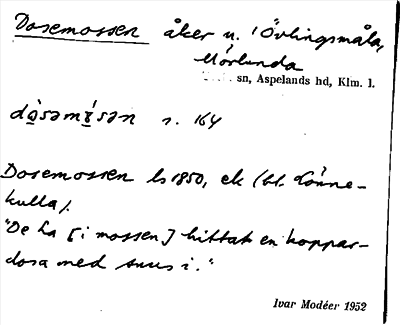 Dosemossen åker u. Övlingsmåla,
Mörlunda
sn, Aspelands hd, Klm. l.
s. 164
Dosemossen ls 1850, ek (bl. Lönne-
kulla).
"De ha [i mossen] hittat en koppar-
dosa med snus i."
Ivar Modéer 1952